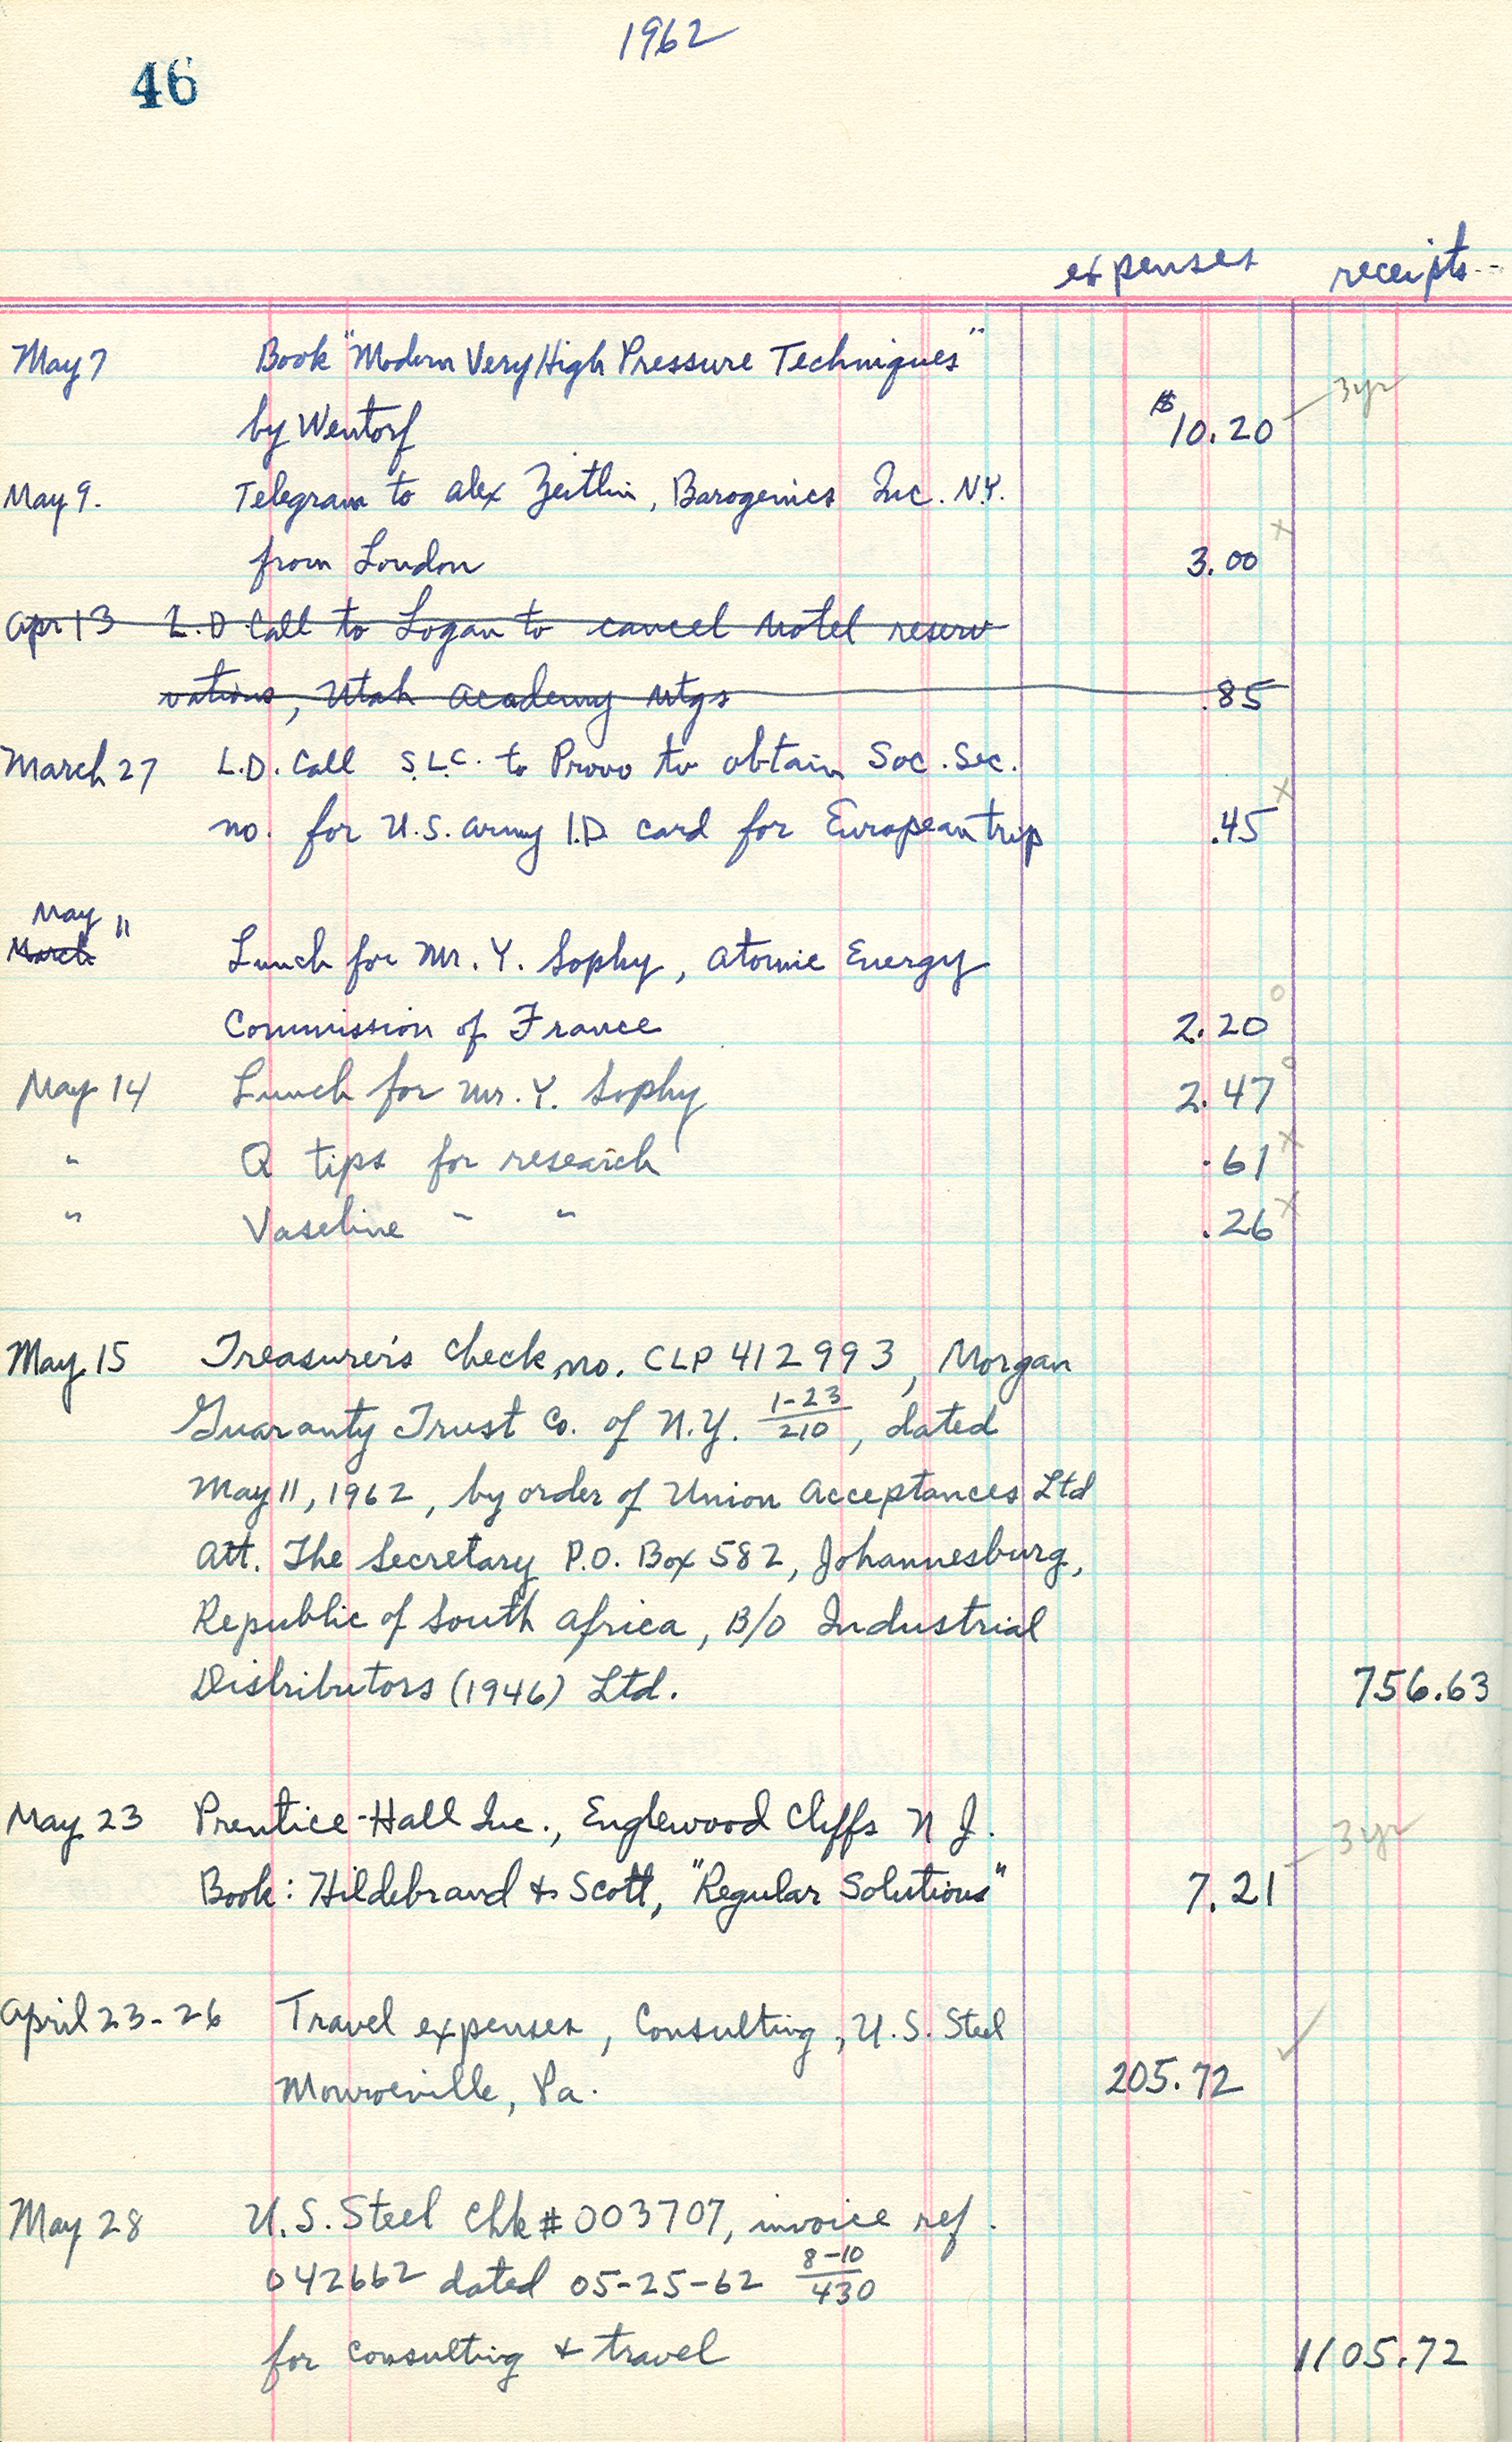 1962
46
expenses receipts
May 7 Book "Modern Very High Pressure Techniques"
by Wentorf $10.20 3yr
May 9. Telegram to Alex Zeitlin, Barogenics Inc. N.Y.
x
from London 3.00
Apr 13 L.D. Call to Logan to cancel Motel reser
vations, Utah Academy Mtgs .85
March 27 L.D. Call S.L.C. to Provo to obtain Soc. Sec.
x
no. for U.S. Army I.D. card for European trip .45
May 11
March
Lunch for Mr. Y. Sophy, Atomic Energy
o
Commission of France 2.20
May 14 Lunch for Mr. Y. Sophy 2.47 o
" Q tips for research .61 x
" Vaseline " " .26 x
May 15 Treasurer's Check no. CLP 412993, Morgan
Guaranty Trust Co. of N.Y. 1-23/210, dated
May 11, 1962, by order of Union Acceptances Ltd
Att. The Secretary P.O. Box 582, Johannesburg,
Republic of South Africa, B/O Industrial
Distributors (1946) Ltd. 756.63
May 23 Prentice-Hall Inc., Englewood Cliffs N J. 3yr
Book: Hildebrand & Scott, "Regular Solutions" 7.21
April 23-26 Travel expenses, Consulting, U.S. Steel
Monroeville, Pa. 205.72 ✓
May 28 U.S. Steel Chk # 003707, invoice ref.
042662 dated 05-25-62 8-10/430
for consulting & travel 1105.72